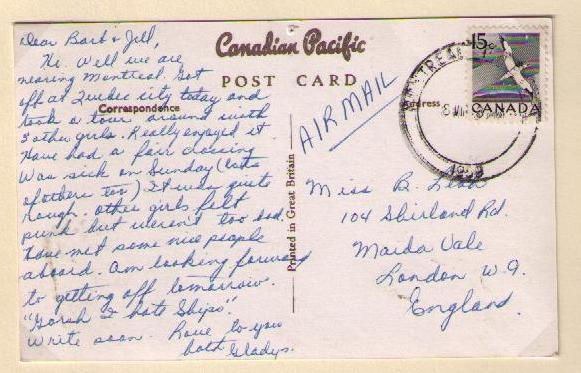 Dear Barb & Jill,
Hi. Well we are
nearing Montreal. Got
off at Quebec city today and
took a tour around with
3 other girls. Really enjoyed it.
Have had a fair crossing
Was sick on Sunday (lots
of others too) It was quite
rough. Other girls felt
punk but weren't too bad.
Have met some nice people
aboard. Am looking forward
to getting off tomorrow.
"Gorsh I hate Ships".
Write soon. Love to you
both Gladys.
Canadian Pacific
POST CARD
Correspondence
Address
Printed in Great Britain
AIR MAIL
15c
CANADA
MONTREAL
Miss B.
104 Shirland Rd.
Maida Vale
London W.9.
England.